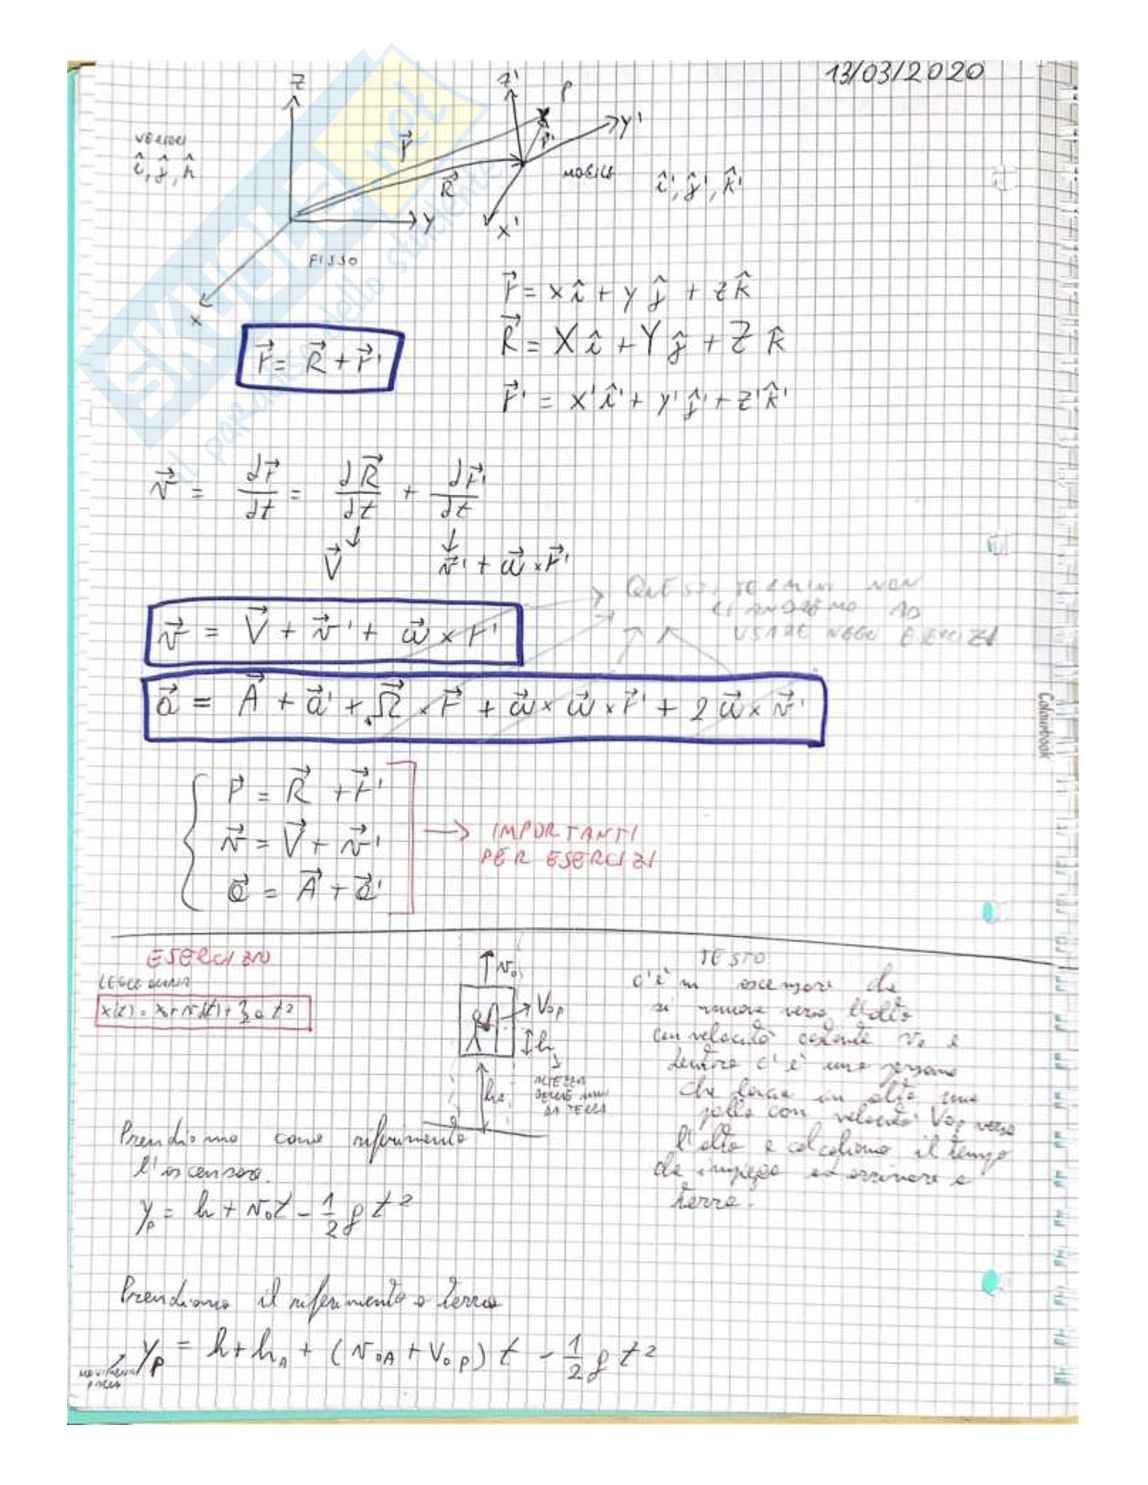 13/03/2020
Z
Z'
P
Y'
VERSORI
î, ĵ, k̂
r⃗
r⃗'
R⃗
MOBILE
î', ĵ', k̂'
Y
X'
FISSO
X
r⃗ = x î + y ĵ + z k̂
r⃗ = R⃗ + r⃗'
R⃗ = X î + Y ĵ + Z k̂
r⃗' = x' î' + y' ĵ' + z' k̂'
v⃗ = dr⃗/dt = dR⃗/dt + dr⃗'/dt
V⃗ v⃗' + ω⃗ × r⃗'
QUESTI TERMINI NON
CI ANDREMO AD
USARE NEGLI ESERCIZI
v⃗ = V⃗ + v⃗' + ω⃗ × r'
a⃗ = A⃗ + a⃗' + Ω⃗ × r⃗ + ω⃗ × ω⃗ × r⃗' + 2 ω⃗ × v⃗'
r⃗ = R⃗ + r⃗'
v⃗ = V⃗ + v⃗'
a⃗ = A⃗ + a⃗'
→ IMPORTANTI
PER ESERCIZI
Colourbook
ESERCIZIO
LEGGE ORARIA
v₀
V₀p
h
ALTEZZA
DA TERRA
TESTO
c'è un ascensore che
si muove verso l'alto
con velocità costante V₀ e
dentro c'è una persona
che lancia in alto una
palla con velocità V₀p verso
l'alto e calcoliamo il tempo
che impiega ad arrivare a
terra.
Prendiamo come riferimento
l'ascensore.
yₚ = h + v₀t - 1/2 g t²
Prendiamo il riferimento a terra
yₚ = h + hₐ + (v₀ₐ + v₀ₚ) t - 1/2 g t²
SKUOLA.net
il paradiso dello studente